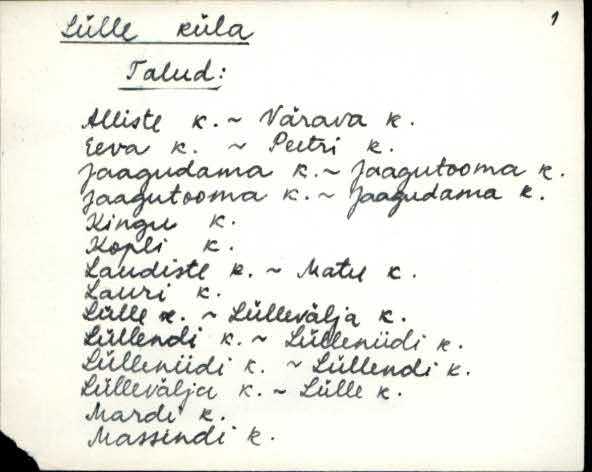 1
Lülle küla
Talud:
Alliste k. ~ Värava k.
Eeva k. ~ Peetri k.
Jaagudama k. ~ Jaagutooma k.
Jaagutooma k. ~ Jaagudama k.
Kingu k.
Kopli k.
Laudiste k. ~ Matu k.
Lauri k.
Lülle k. ~ Lüllevälja k.
Lüllendi k. ~ Lülleniidi k.
Lülleniidi k. ~ Lüllendi k.
Lüllevälja k. ~ Lülle k.
Mardi k.
Massendi k.